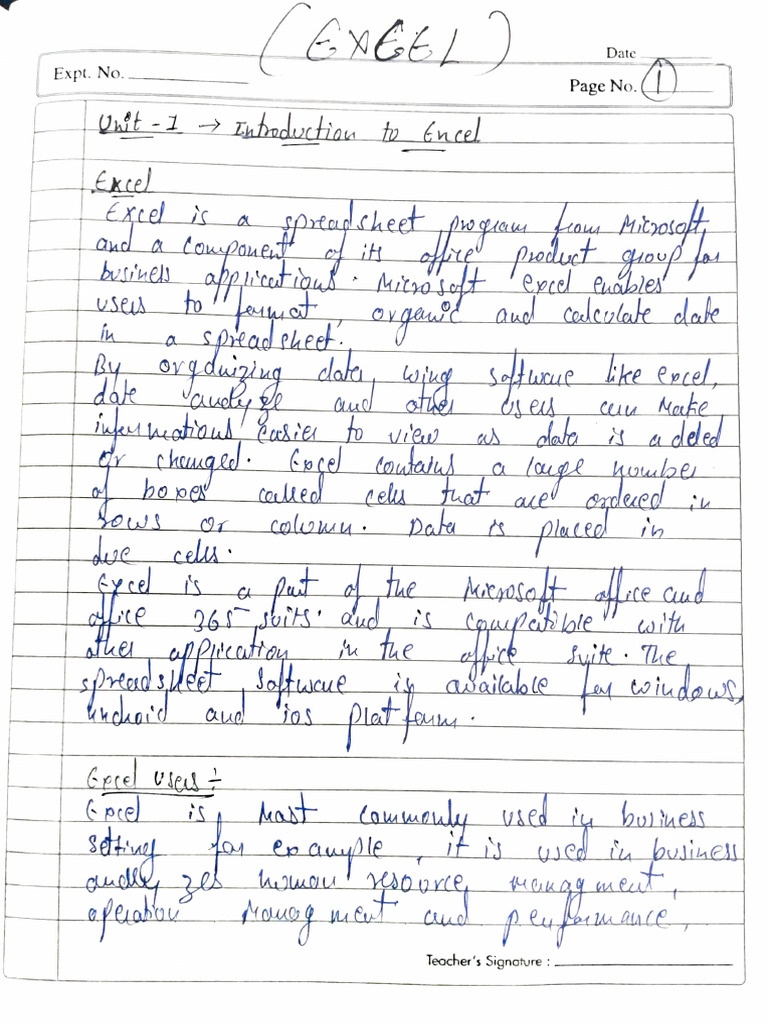 (EXCEL)
Date
Expt. No.
Page No. 1
Unit - 1 → Introduction to Excel
Excel
Excel is a spreadsheet program from Microsoft,
and a component of its office product group for
business applications. Microsoft excel enables
users to format, organic and calculate date
in a spreadsheet.
By orgdnizing data, wing software like excel,
date analyze and other users can make
informations easier to view as data is adeled
or changed. Excel contains a large number
of boxes called cells that are ordered in
rows or column. Data is placed in
due cells.
Excel is a part of the Microsoft office and
office 365 suits. and is compatible with
other application in the office suite. The
spreadsheet software is available for windows,
android and ios platform.
Excel users :-
Excel is, most commonly used in business
setting for example, it is used in business
analyzes human resource managment,
operation managment and performance,
Teacher's Signature :